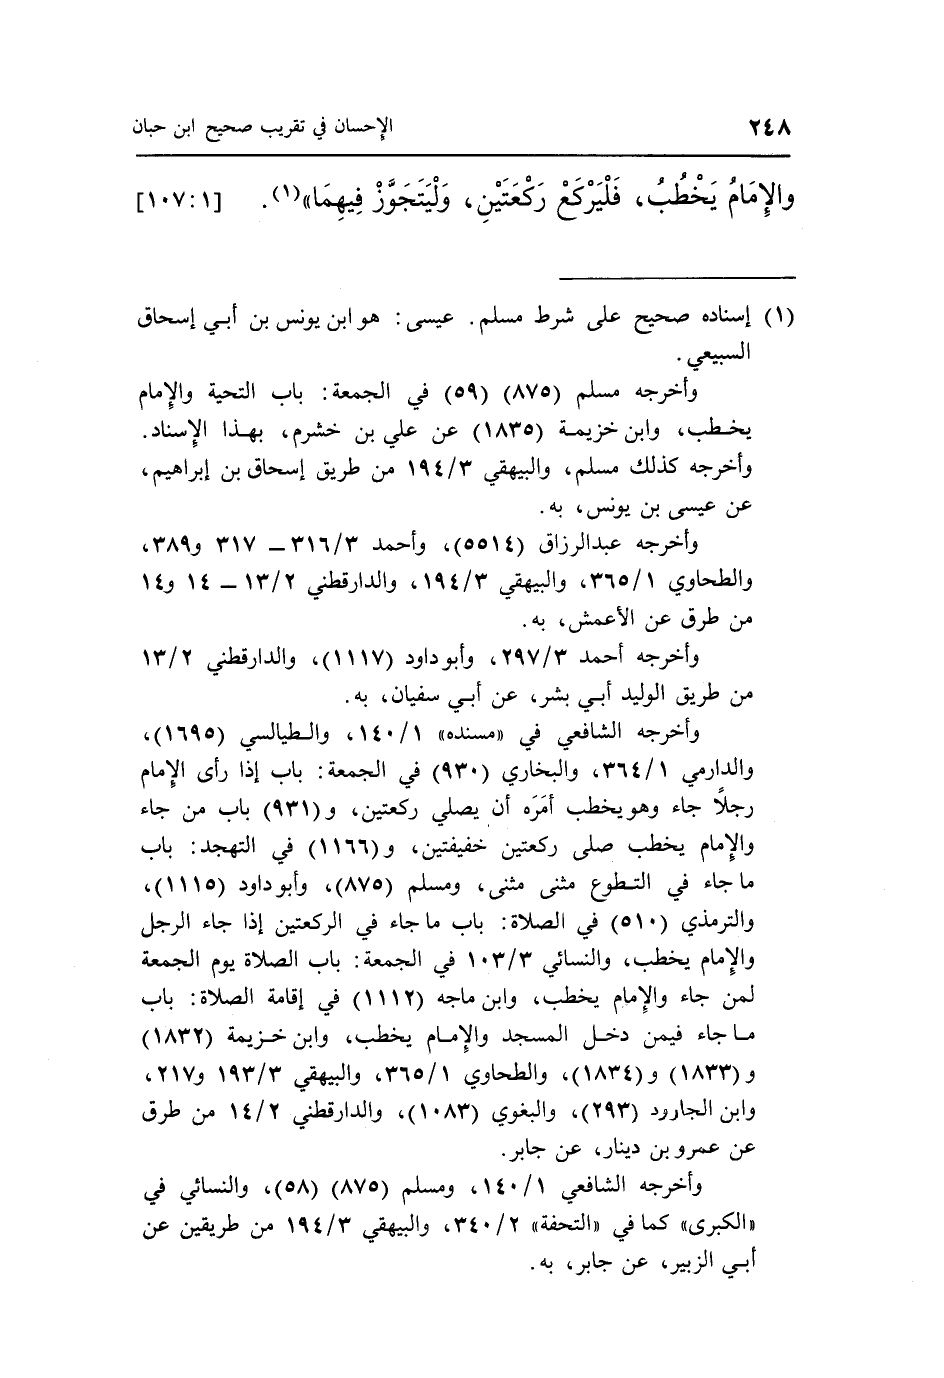 ٢٤٨ الإحسان في تقريب صحيح ابن حبان
والإِمَامُ يَخْطُبُ، فَلْيَرْكَعْ رَكْعَتَيْنِ، وَلْيَتَجَوَّزْ فِيهِمَا»(١). [١٠٧:١]
(١) إسناده صحيح على شرط مسلم. عيسى: هو ابن يونس بن أبي إسحاق
السبيعي.
وأخرجه مسلم (٨٧٥) (٥٩) في الجمعة: باب التحية والإمام
يخطب، وابن خزيمة (١٨٣٥) عن علي بن خشرم، بهذا الإسناد.
وأخرجه كذلك مسلم، والبيهقي ١٩٤/٣ من طريق إسحاق بن إبراهيم،
عن عيسى بن يونس، به.
وأخرجه عبدالرزاق (٥٥١٤)، وأحمد ٣١٦/٣ ــ ٣١٧ و٣٨٩،
والطحاوي ٣٦٥/١، والبيهقي ١٩٤/٣، والدارقطني ١٣/٢ ــ ١٤ و١٤
من طرق عن الأعمش، به.
وأخرجه أحمد ٢٩٧/٣، وأبو داود (١١١٧)، والدارقطني ١٣/٢
من طريق الوليد أبي بشر، عن أبي سفيان، به.
وأخرجه الشافعي في «مسنده» ١٤٠/١، والطيالسي (١٦٩٥)،
والدارمي ٣٦٤/١، والبخاري (٩٣٠) في الجمعة: باب إذا رأى الإمام
رجلاً جاء وهو يخطب أمَرَه أن يصلي ركعتين، و(٩٣١) باب من جاء
والإمام يخطب صلى ركعتين خفيفتين، و(١١٦٦) في التهجد: باب
ما جاء في التطوع مثنى مثنى، ومسلم (٨٧٥)، وأبو داود (١١١٥)،
والترمذي (٥١٠) في الصلاة: باب ما جاء في الركعتين إذا جاء الرجل
والإمام يخطب، والنسائي ١٠٣/٣ في الجمعة: باب الصلاة يوم الجمعة
لمن جاء والإمام يخطب، وابن ماجه (١١١٢) في إقامة الصلاة: باب
ما جاء فيمن دخل المسجد والإمام يخطب، وابن خزيمة (١٨٣٢)
و(١٨٣٣) و(١٨٣٤)، والطحاوي ٣٦٥/١، والبيهقي ١٩٣/٣ و٢١٧،
وابن الجارود (٢٩٣)، والبغوي (١٠٨٣)، والدارقطني ١٤/٢ من طرق
عن عمرو بن دينار، عن جابر.
وأخرجه الشافعي ١٤٠/١، ومسلم (٨٧٥) (٥٨)، والنسائي في
«الكبرى» كما في «التحفة» ٣٤٠/٢، والبيهقي ١٩٤/٣ من طريقين عن
أبي الزبير، عن جابر، به.